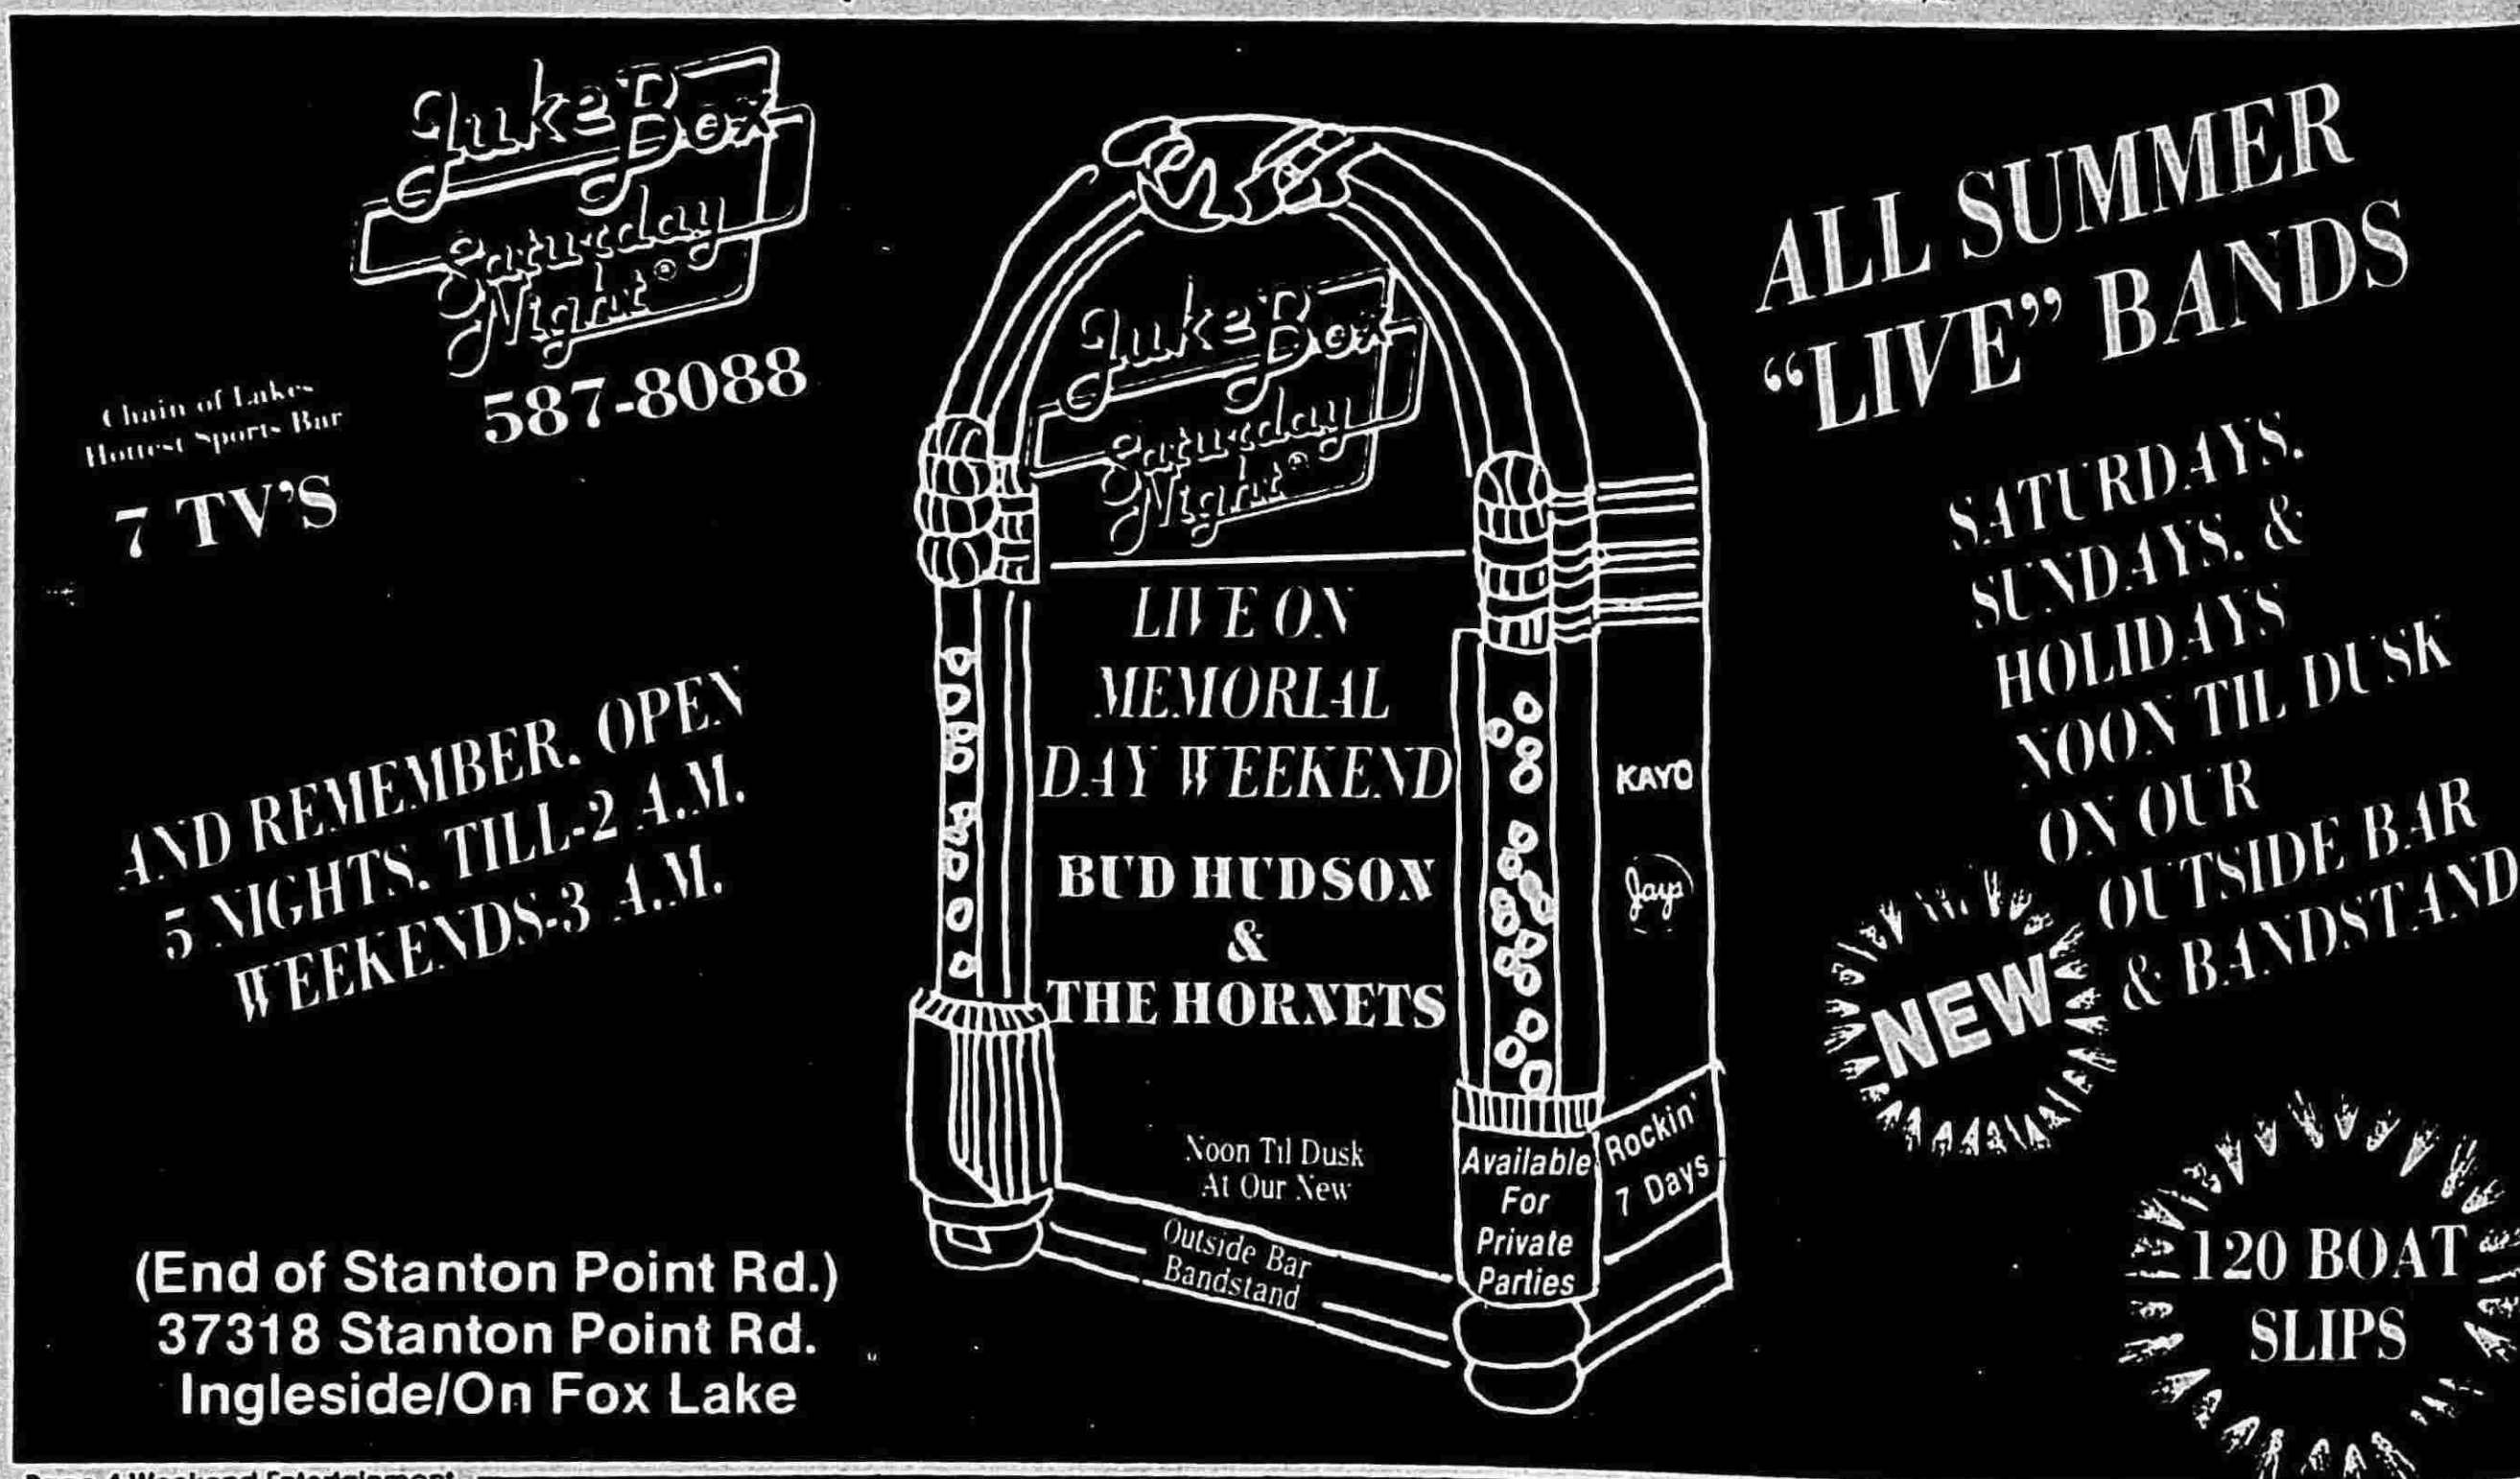 Juke Box
Saturday
Night®
587-8088
Chain of Lakes
Hottest Sports Bar
7 TV'S
AND REMEMBER, OPEN
5 NIGHTS, TILL-2 A.M.
WEEKENDS-3 A.M.
(End of Stanton Point Rd.)
37318 Stanton Point Rd.
Ingleside/On Fox Lake
Juke Box
Saturday
Night®
LIVE ON
MEMORIAL
DAY WEEKEND
BUD HUDSON
&
THE HORNETS
Noon Til Dusk
At Our New
Outside Bar
Bandstand
KAYO
Jays
Available
For
Private
Parties
Rockin'
7 Days
ALL SUMMER
"LIVE" BANDS
SATURDAYS,
SUNDAYS, &
HOLIDAYS
NOON TIL DUSK
ON OUR
OUTSIDE BAR
& BANDSTAND
NEW
120 BOAT
SLIPS
Page 4 Weekend Entertainment